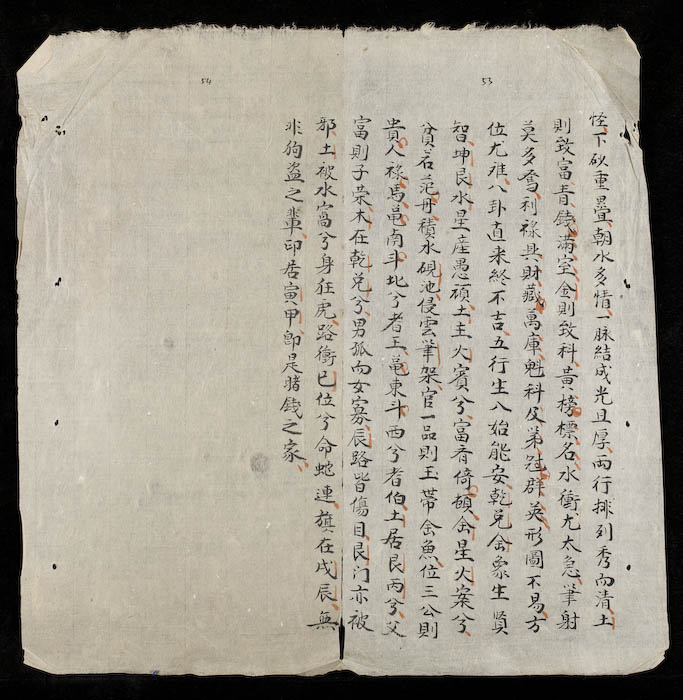 53
怪下砂重疊朝水多情一脉結成光且厚兩行排列秀而清土
則致富青錢滿室金則致科黃榜標名水衝尤太急筆射
莫多奪利祿與財藏萬庫魁科及第冠群英形圖不易方
位尤难八卦直来終不吉五行生入始能安乾兌金象生賢
智坤艮水星産愚頑土主火賓兮富有倚頓金星火案兮
貧若范冊積水硯池侵雲筆架官一品則玉帶金魚位三公則
貴人祿馬黽南斗北兮者王黽東斗西兮者伯土居艮丙兮父
富則子荣木在乾兌兮男孤而女寡辰路皆傷目艮门亦被
邪土被水窩兮身狂虎路衝巳位兮命蛇連旗在戌辰無
非狗盗之輩印居寅甲即是賭錢之家
54